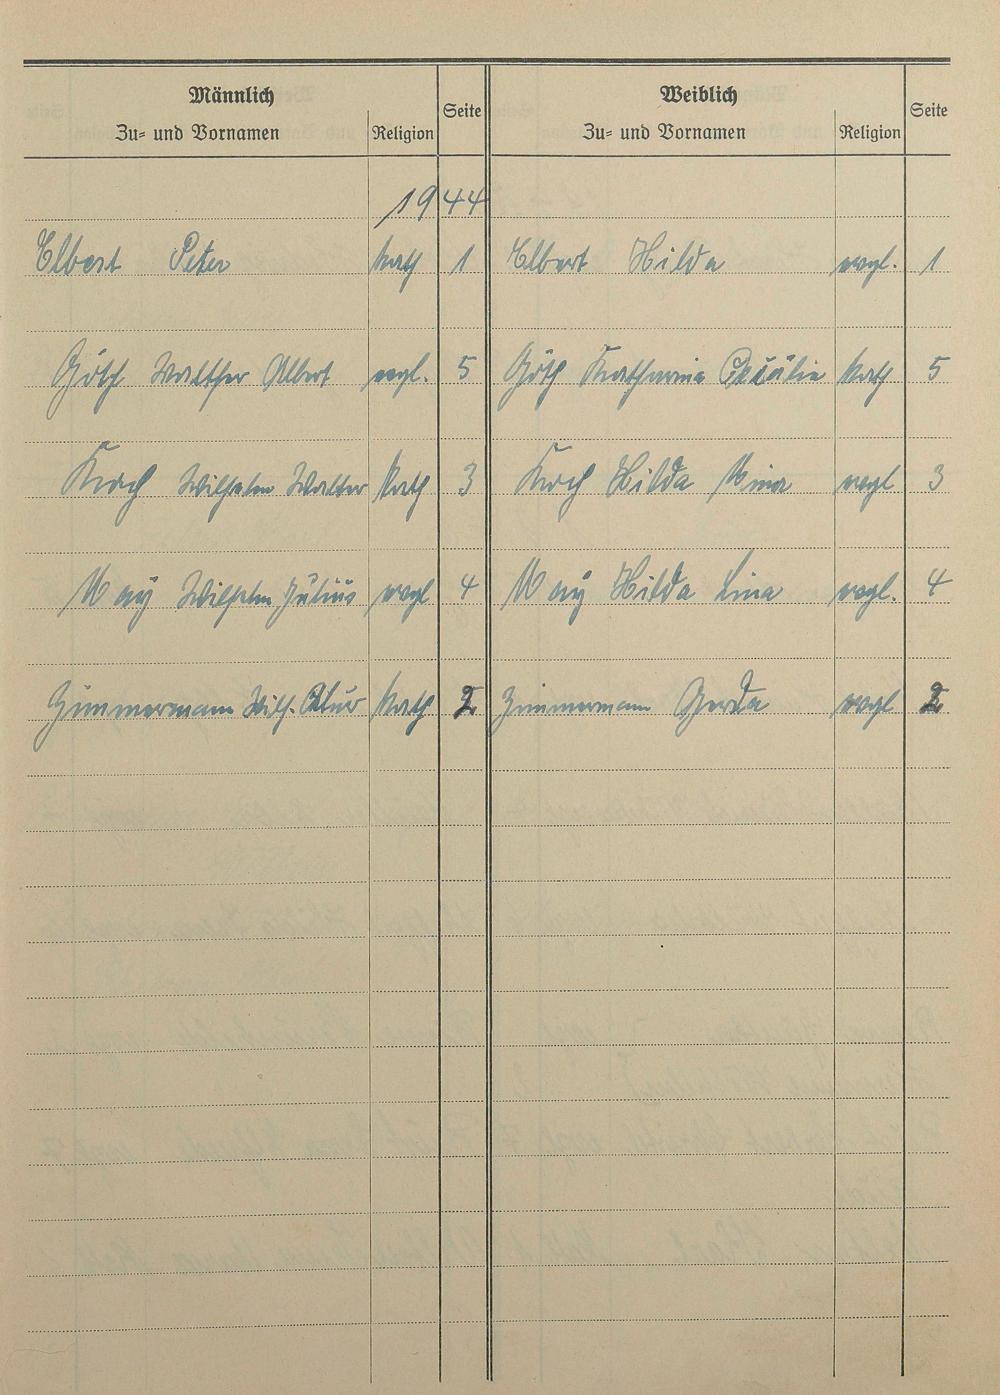 Männlich Seite Weiblich Seite
Zu= und Vornamen Religion Zu= und Vornamen Religion
1944
Elbert Peter Kath 1 Elbert Hilda evgl. 1
Göth Walther Albert evgl. 5 Göth Katharina Cäcilie Kath 5
Koch Wilhelm Walter Kath 3 Koch Hilda Mina evgl 3
May Wilhelm Julius evgl 4 May Hilda Lina evgl. 4
Zimmermann Wilh. Kath 2 Zimmermann Gerda evgl 2